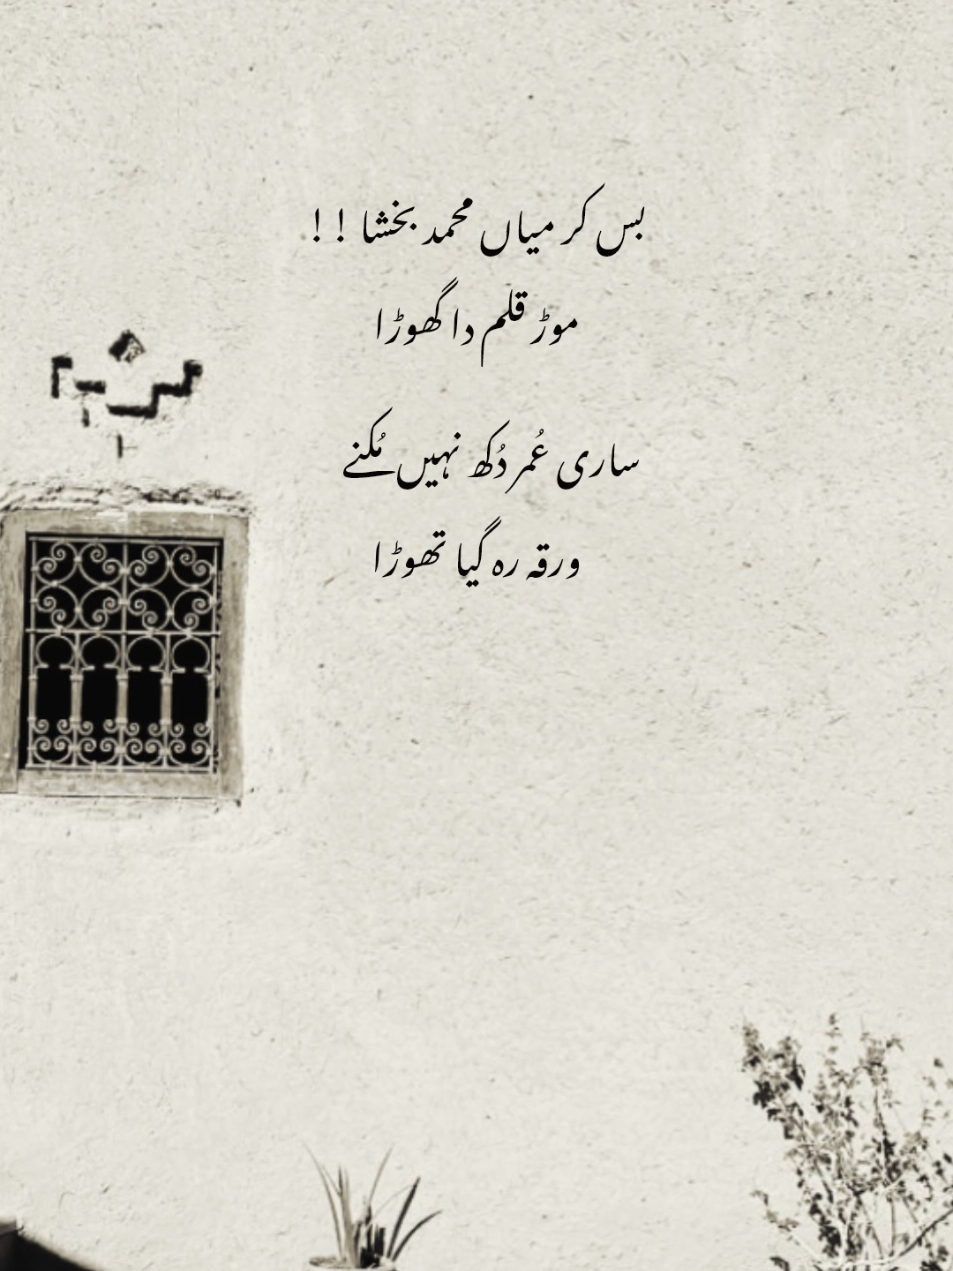 بس کر میاں محمد بخشا !!
موڑ قلم دا گھوڑا
ساری عُمر دُکھ نہیں مُکنے
ورقہ رہ گیا تھوڑا